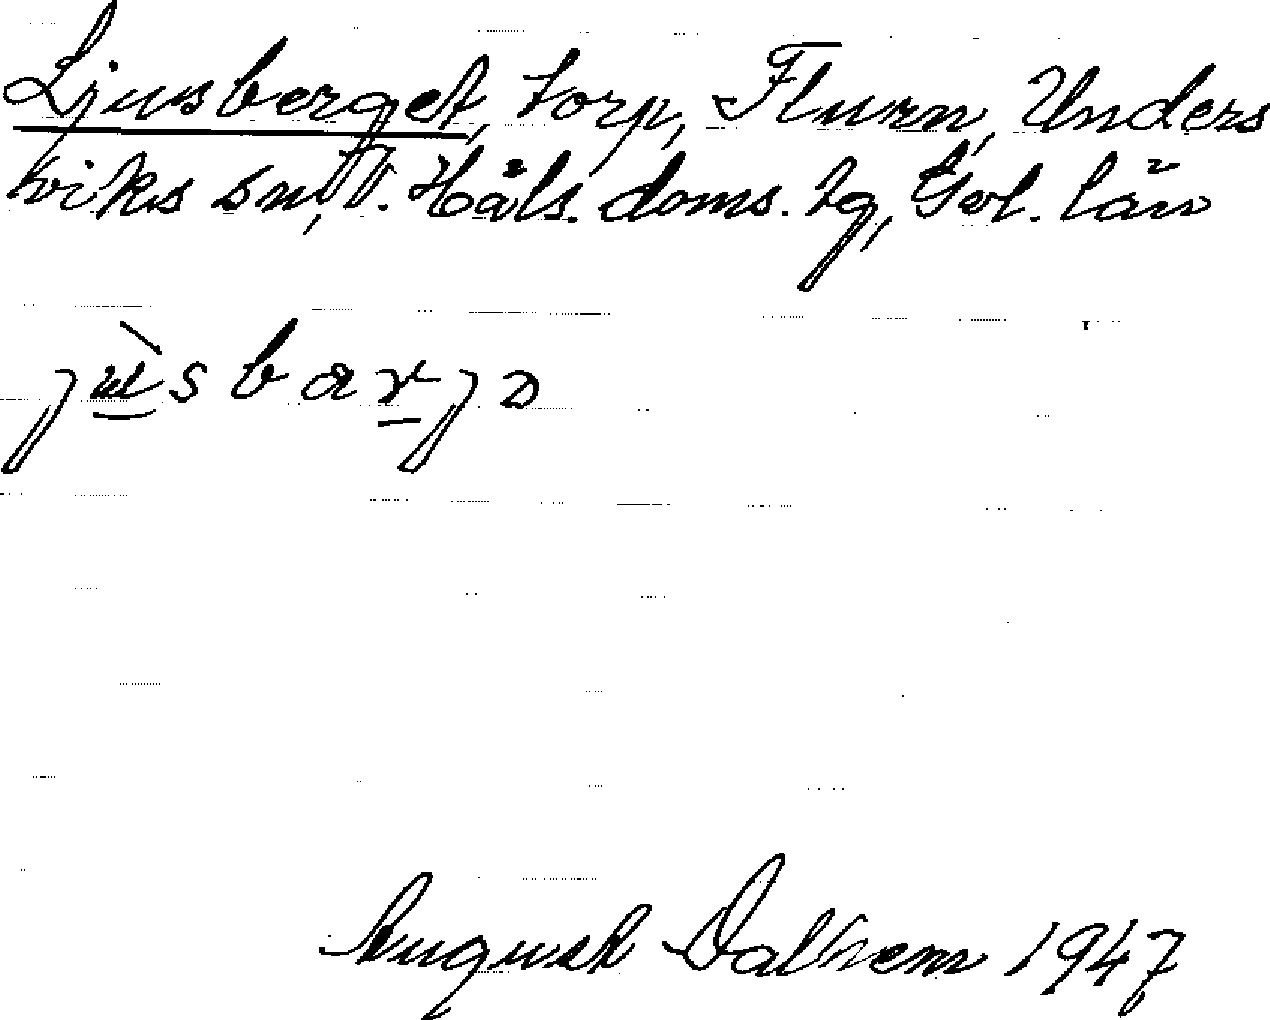 Ljusberget, torp, Flurn, Unders
viks sn, V. Häls. doms. tg, Gvl. län
jùsbarjə
August Dalhem 1947